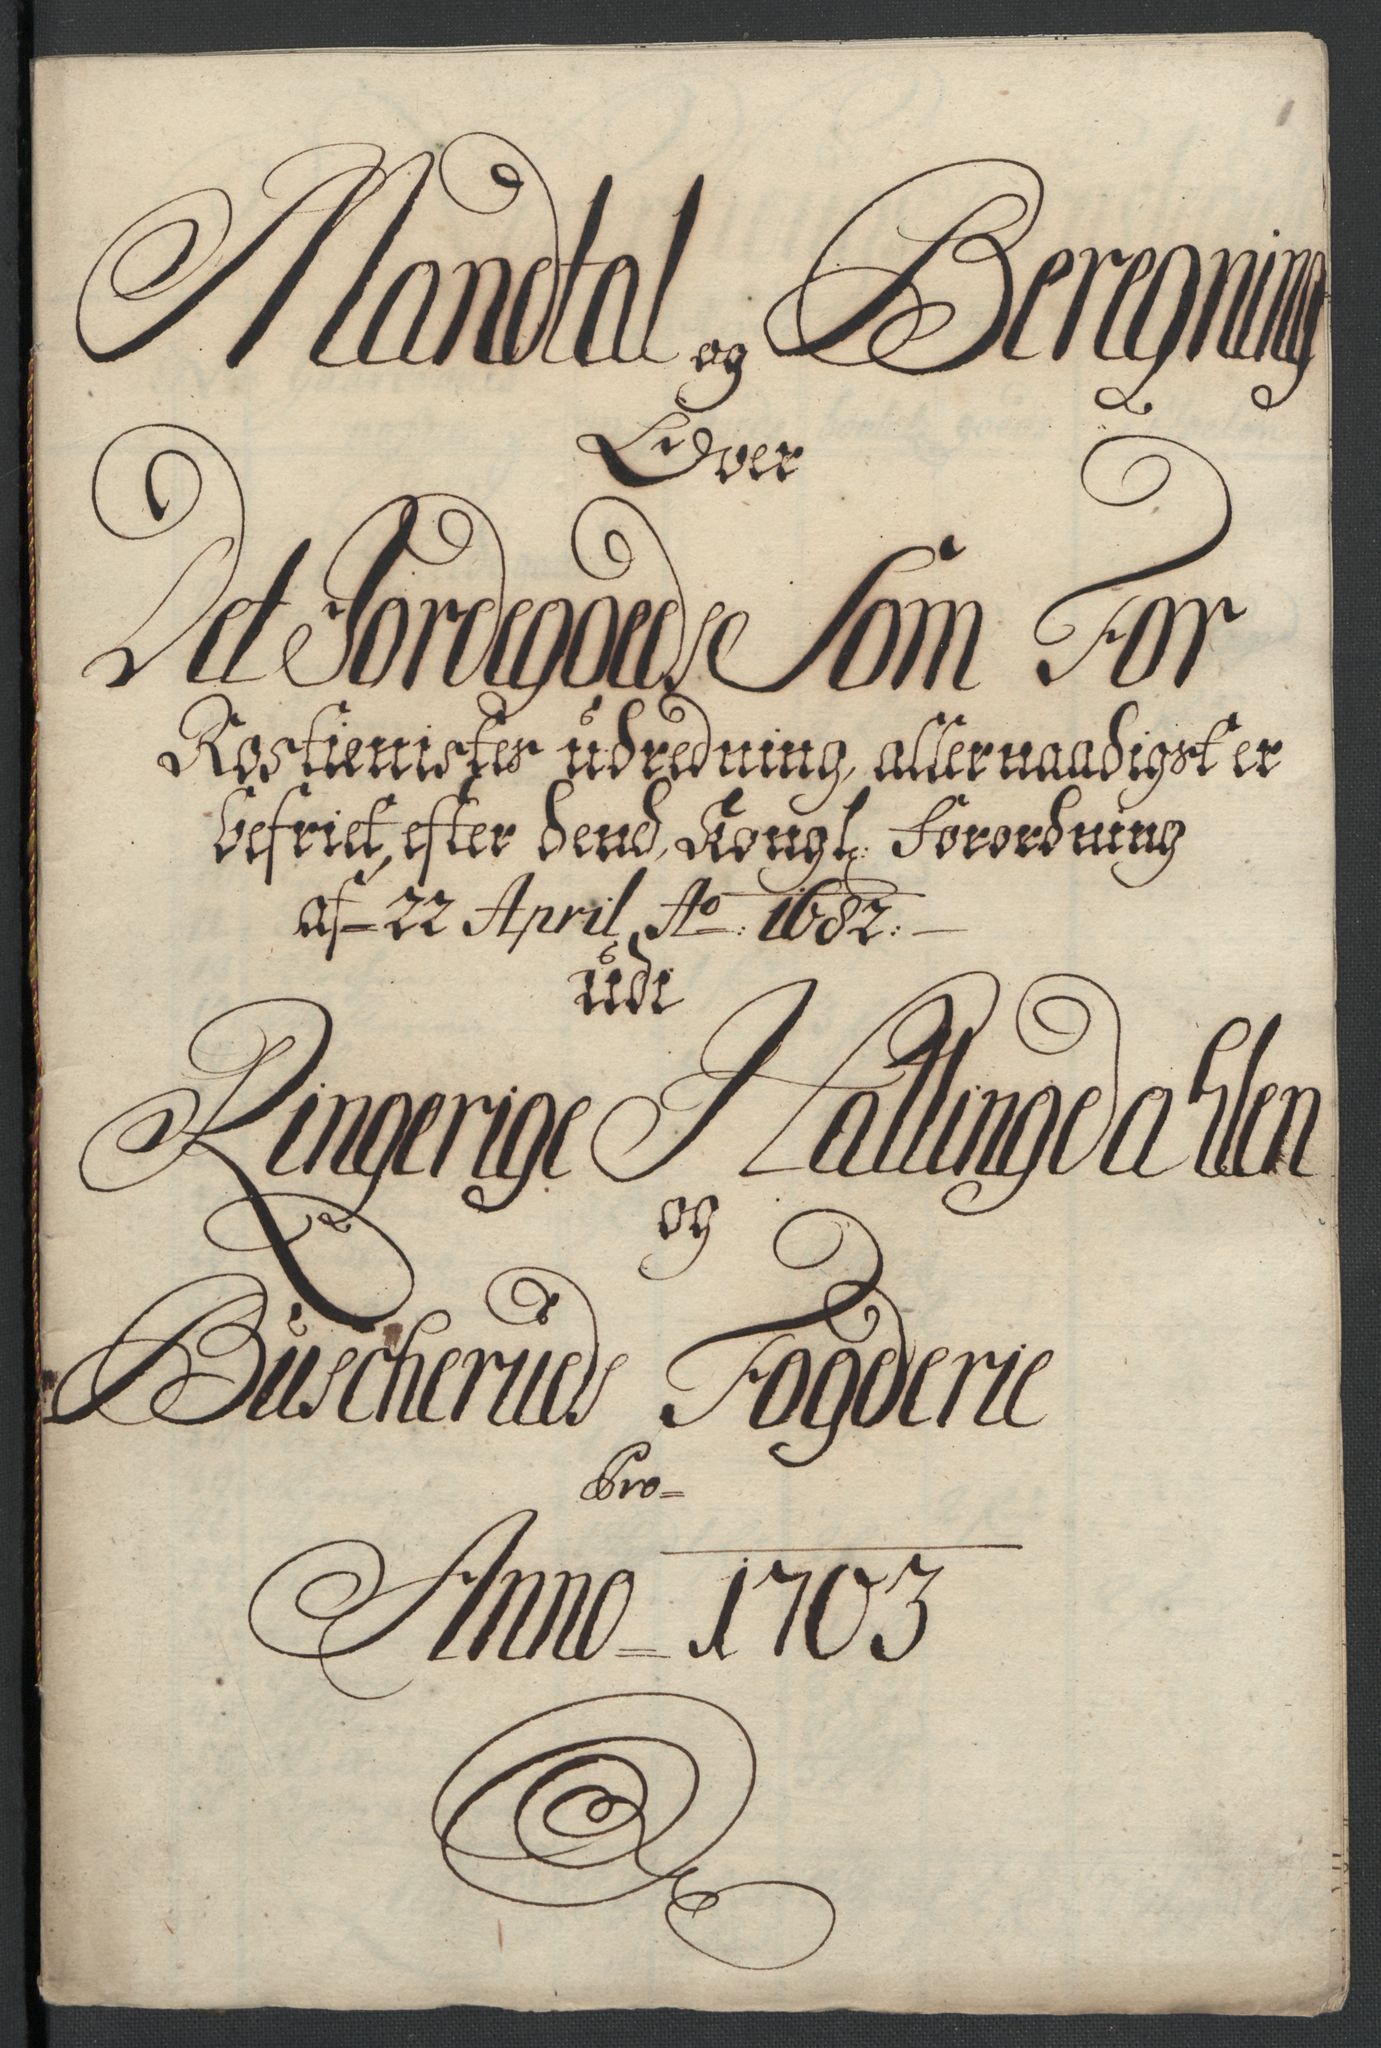 Mandtal og Beregning
Over
Det Jordegoeds Som For
Rostienistes udredning, allernaadigst er
befriet, efter dend, Kongl: forordning
af 22 April Ao: 1682:
udi
Ringerige Hallingdahlen
og
Buscheruds Fogderie
Pro
Anno 1703